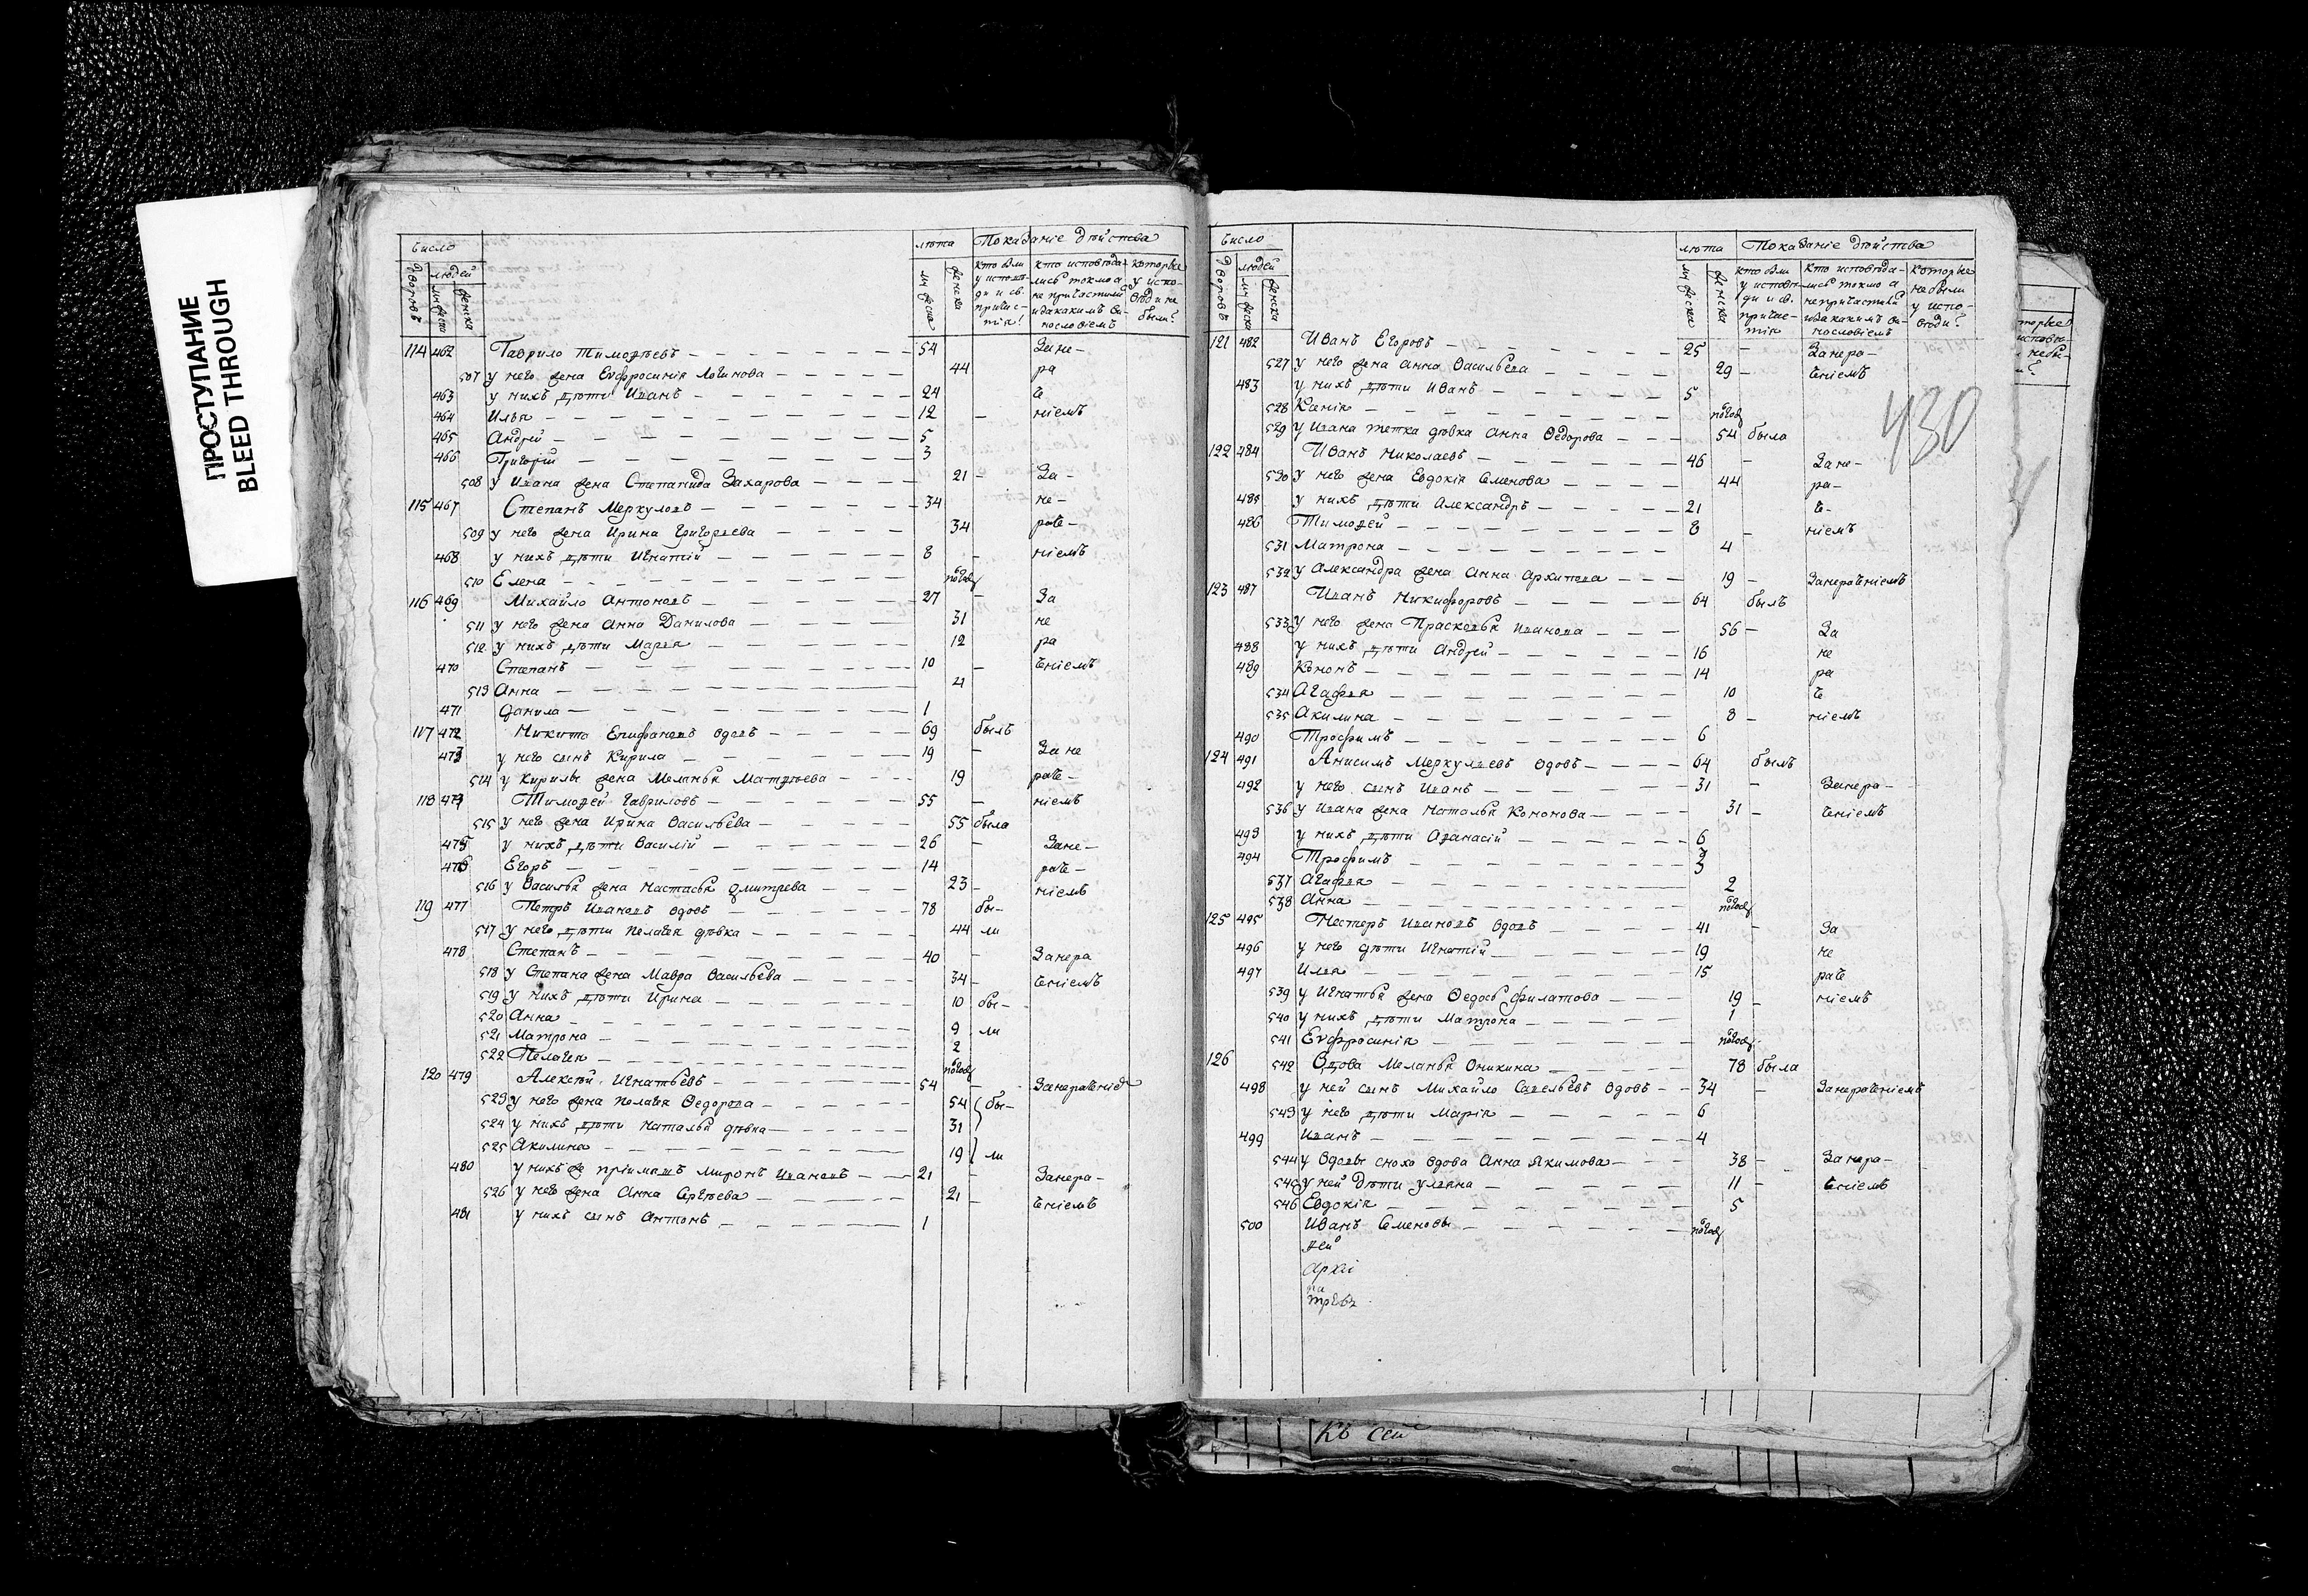 ПРОСТУПАНИЕ
BLEED THROUGH
Число
людей
лѣта
Показаніе дѣйства
114 462 Гаврило Тимоѳѣевъ 54 Зане-
507 у него жена Евфросинія Логинова 44 ра
463 у нихъ дѣти Иванъ 24 че
464 Илья 12 - ніемъ
465 Андрей 5
466 Григорій 3
508 у Ивана жена Степанида Захарова 21 - За-
115 467 Степанъ Меркуловъ 34 не-
509 у него жена Ирина Григорьева 34 раче-
468 у нихъ дѣти Игнатій 8 - ніемъ
510 Елена полгод
116 469 Михайло Антоновъ 27 - За
511 у него жена Анна Данилова 31 не
512 у нихъ дѣти Марья 12 ра
470 Степанъ 10 - ченіемъ
513 Анна 4
471 Данила 1
117 472 Никита Епифановъ вдовъ 69 былъ
473 у него сынъ Кирила 19 - Зане
514 у Кирилы жена Меланья Матвѣева 19 раче-
118 474 Тимоѳей Гавриловъ 55 - ніемъ
515 у него жена Ирина Васильева 55 была
475 у нихъ дѣти Василій 26 - Зане-
476 Егоръ 14 раче-
516 у Василья жена Настасья Дмитрева 23 - ніемъ
119 477 Петръ Ивановъ вдовъ 78 бы-
517 у него дѣти Пелагея дѣвка 44 ли
478 Степанъ 40 - Занера
518 у Степана жена Мавра Васильева 34 - ченіемъ
519 у нихъ дѣти Ирина 10 бы-
520 Анна 9 ли
521 Матрона 2
522 Пелагея полгод
120 479 Алексѣй Игнатьевъ 54 - Занераченіе
523 у него жена Пелагея Ѳедорова 54 бы-
524 у нихъ дѣти Наталья дѣвка 31
525 Акилина 19 ли
480 у нихъ же пріимашъ Миронъ Ивановъ 21 - Занера-
526 у него жена Анна Сергѣева 21 - ченіемъ
481 у нихъ сынъ Антонъ 1
Число
людей
лѣта
Показаніе дѣйства
430
121 482 Иванъ Егоровъ 25 - Занера-
527 у него жена Анна Васильева 29 - ченіемъ
483 у нихъ дѣти Иванъ 5
528 Ксенія полгод
529 у Ивана тетка дѣвка Анна Ѳедорова 54 была
122 484 Иванъ Николаевъ 46 - Зане-
530 у него жена Евдокія Семенова 44 ра-
485 у нихъ дѣти Александръ 21 че-
486 Тимоѳей 8 - ніемъ
531 Матрона 4
532 у Александра жена Анна Архипова 19 - Занераченіемъ
123 487 Иванъ Никифоровъ 64 былъ
533 у него жена Прасковья Иванова 56 - За
488 у нихъ дѣти Андрей 16 не
489 Кононъ 14 ра
534 Агафья 10 че
535 Акилина 8 - ніемъ
490 Трофимъ 6
124 491 Анисимъ Меркульевъ вдовъ 64 былъ
492 у него сынъ Иванъ 31 - Занера-
536 у Ивана жена Наталья Кононова 31 - ченіемъ
493 у нихъ дѣти Афанасій 6
494 Трофимъ 3
537 Агафья 2
538 Анна полгод
125 495 Нестеръ Ивановъ вдовъ 41 - За
496 у него дѣти Игнатій 19 не
497 Илья 15 раче
539 у Игнатья жена Ѳедосья Филатова 19 - ніемъ
540 у нихъ дѣти Матрона 1
541 Евфросинія полгод
126 542 Вдова Меланья Оникина 78 была
498 у ней сынъ Михайло Савельевъ вдовъ 34 - Занераченіемъ
543 у него дѣти Марія 6
499 Иванъ 4
544 у Вдовы сноха вдова Анна Якимова 38 - Занера-
545 у ней дѣти Ульяна 11 - ченіемъ
546 Евдокія 5
500 Иванъ Семеновы полгод
Архі
Къ сей